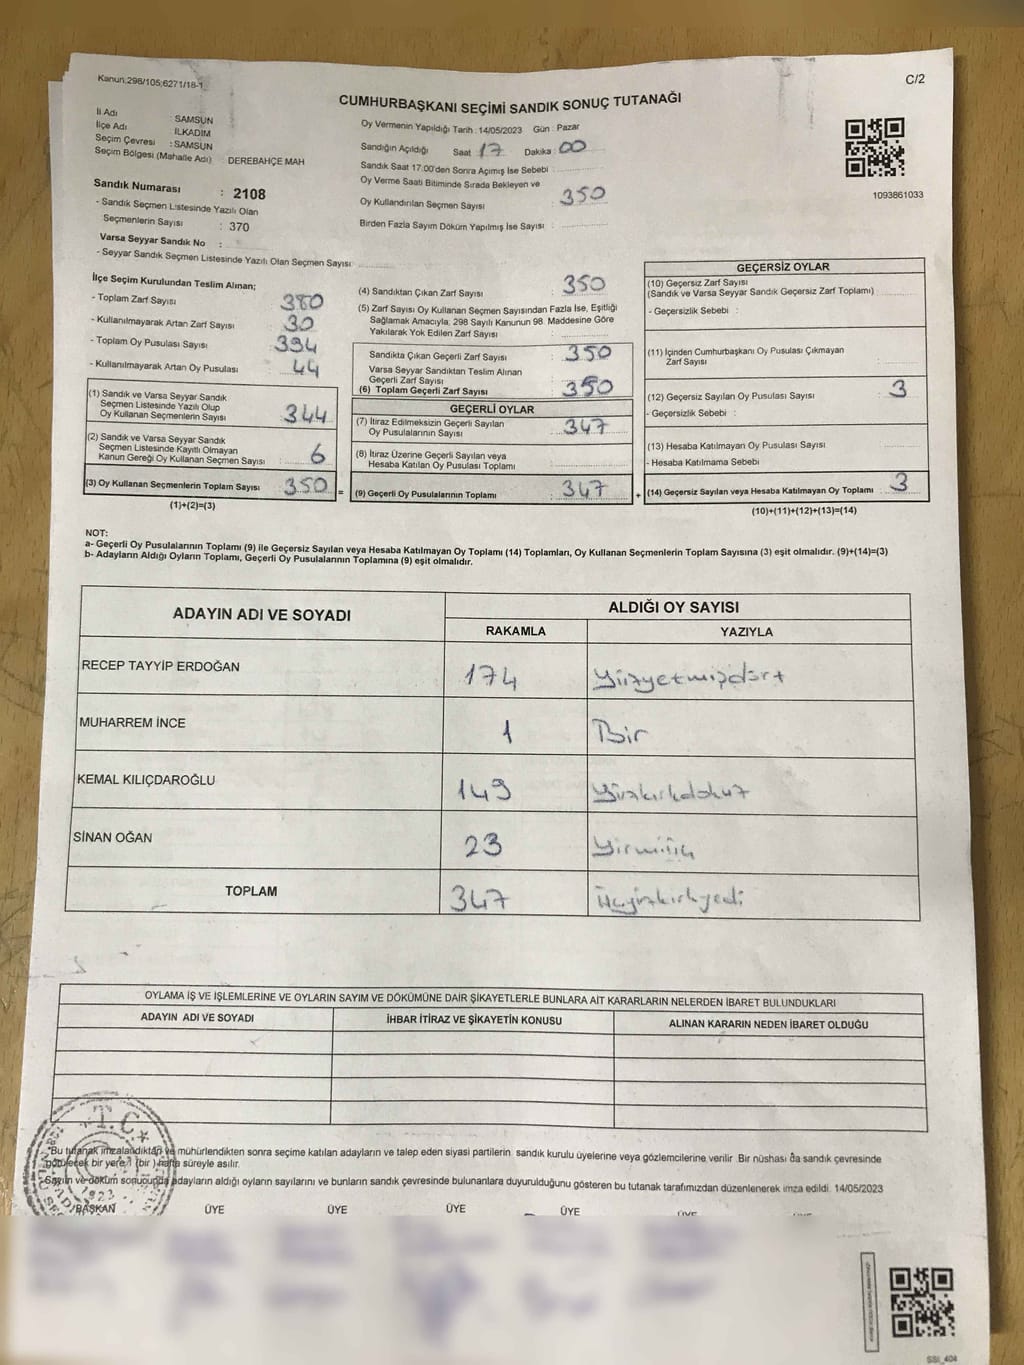 Kanun:298/105;6271/18-1
C/2
CUMHURBAŞKANI SEÇİMİ SANDIK SONUÇ TUTANAĞI
İl Adı : SAMSUN
İlçe Adı : İLKADIM
Seçim Çevresi : SAMSUN
Seçim Bölgesi (Mahalle Adı) DEREBAHÇE MAH
Sandık Numarası : 2108
- Sandık Seçmen Listesinde Yazılı Olan
Seçmenlerin Sayısı : 370
Varsa Seyyar Sandık No :
- Seyyar Sandık Seçmen Listesinde Yazılı Olan Seçmen Sayısı
Oy Vermenin Yapıldığı Tarih : 14/05/2023 Gün : Pazar
Sandığın Açıldığı Saat 17 Dakika 00
Sandık Saat 17:00'den Sonra Açımış İse Sebebi
Oy Verme Saati Bitiminde Sırada Bekleyen ve
Oy Kullandırılan Seçmen Sayısı : 350
Birden Fazla Sayım Döküm Yapılmış İse Sayısı :
1093861033
İlçe Seçim Kurulundan Teslim Alınan;
- Toplam Zarf Sayısı 380
- Kullanılmayarak Artan Zarf Sayısı 30
- Toplam Oy Pusulası Sayısı 394
- Kullanılmayarak Artan Oy Pusulası 44
(1) Sandık ve Varsa Seyyar Sandık
Seçmen Listesinde Yazılı Olup
Oy Kullanan Seçmenlerin Sayısı 344
(2) Sandık ve Varsa Seyyar Sandık
Seçmen Listesinde Kayıtlı Olmayan
Kanun Gereği Oy Kullanan Seçmen Sayısı 6
(3) Oy Kullanan Seçmenlerin Toplam Sayısı 350 =
(1)+(2)=(3)
(4) Sandıktan Çıkan Zarf Sayısı : 350
(5) Zarf Sayısı Oy Kullanan Seçmen Sayısından Fazla İse, Eşitliği
Sağlamak Amacıyla, 298 Sayılı Kanunun 98. Maddesine Göre
Yakılarak Yok Edilen Zarf Sayısı :
Sandıkta Çıkan Geçerli Zarf Sayısı : 350
Varsa Seyyar Sandıktan Teslim Alınan
Geçerli Zarf Sayısı
(6) Toplam Geçerli Zarf Sayısı : 350
GEÇERLİ OYLAR
(7) İtiraz Edilmeksizin Geçerli Sayılan
Oy Pusulalarının Sayısı : 347
(8) İtiraz Üzerine Geçerli Sayılan veya
Hesaba Katılan Oy Pusulası Toplamı
(9) Geçerli Oy Pusulalarının Toplamı : 347 +
GEÇERSİZ OYLAR
(10) Geçersiz Zarf Sayısı
(Sandık ve Varsa Seyyar Sandık Geçersiz Zarf Toplamı) :
- Geçersizlik Sebebi :
(11) İçinden Cumhurbaşkanı Oy Pusulası Çıkmayan
Zarf Sayısı
(12) Geçersiz Sayılan Oy Pusulası Sayısı : 3
- Geçersizlik Sebebi :
(13) Hesaba Katılmayan Oy Pusulası Sayısı
- Hesaba Katılmama Sebebi
(14) Geçersiz Sayılan veya Hesaba Katılmayan Oy Toplamı : 3
(10)+(11)+(12)+(13)=(14)
NOT:
a- Geçerli Oy Pusulalarının Toplamı (9) ile Geçersiz Sayılan veya Hesaba Katılmayan Oy Toplamı (14) Toplamları, Oy Kullanan Seçmenlerin Toplam Sayısına (3) eşit olmalıdır. (9)+(14)=(3)
b- Adayların Aldığı Oyların Toplamı, Geçerli Oy Pusulalarının Toplamına (9) eşit olmalıdır.
ADAYIN ADI VE SOYADI
ALDIĞI OY SAYISI
RAKAMLA YAZIYLA
RECEP TAYYİP ERDOĞAN 174 Yüzyetmişdört
MUHARREM İNCE 1 Bir
KEMAL KILIÇDAROĞLU 149 Yüzkırkdokuz
SİNAN OĞAN 23 Yirmiüç
TOPLAM 347 Üçyüzkırkyedi
OYLAMA İŞ VE İŞLEMLERİNE VE OYLARIN SAYIM VE DÖKÜMÜNE DAİR ŞİKAYETLERLE BUNLARA AİT KARARLARIN NELERDEN İBARET BULUNDUKLARI
ADAYIN ADI VE SOYADI İHBAR İTİRAZ VE ŞİKAYETİN KONUSU ALINAN KARARIN NEDEN İBARET OLDUĞU
T.C.
1923
Bu tutanak imzalandıktan ve mühürlendikten sonra seçime katılan adayların ve talep eden siyasi partilerin sandık kurulu üyelerine veya gözlemcilerine verilir. Bir nüshası da sandık çevresinde
götülecek bir yere 1 (bir) hafta süreyle asılır.
Sayım ve döküm sonucunda adayların aldığı oyların sayılarını ve bunların sandık çevresinde bulunanlara duyurulduğunu gösteren bu tutanak tarafımızdan düzenlenerek imza edildi. 14/05/2023
BAŞKAN ÜYE ÜYE ÜYE ÜYE ÜYE
SSI_404